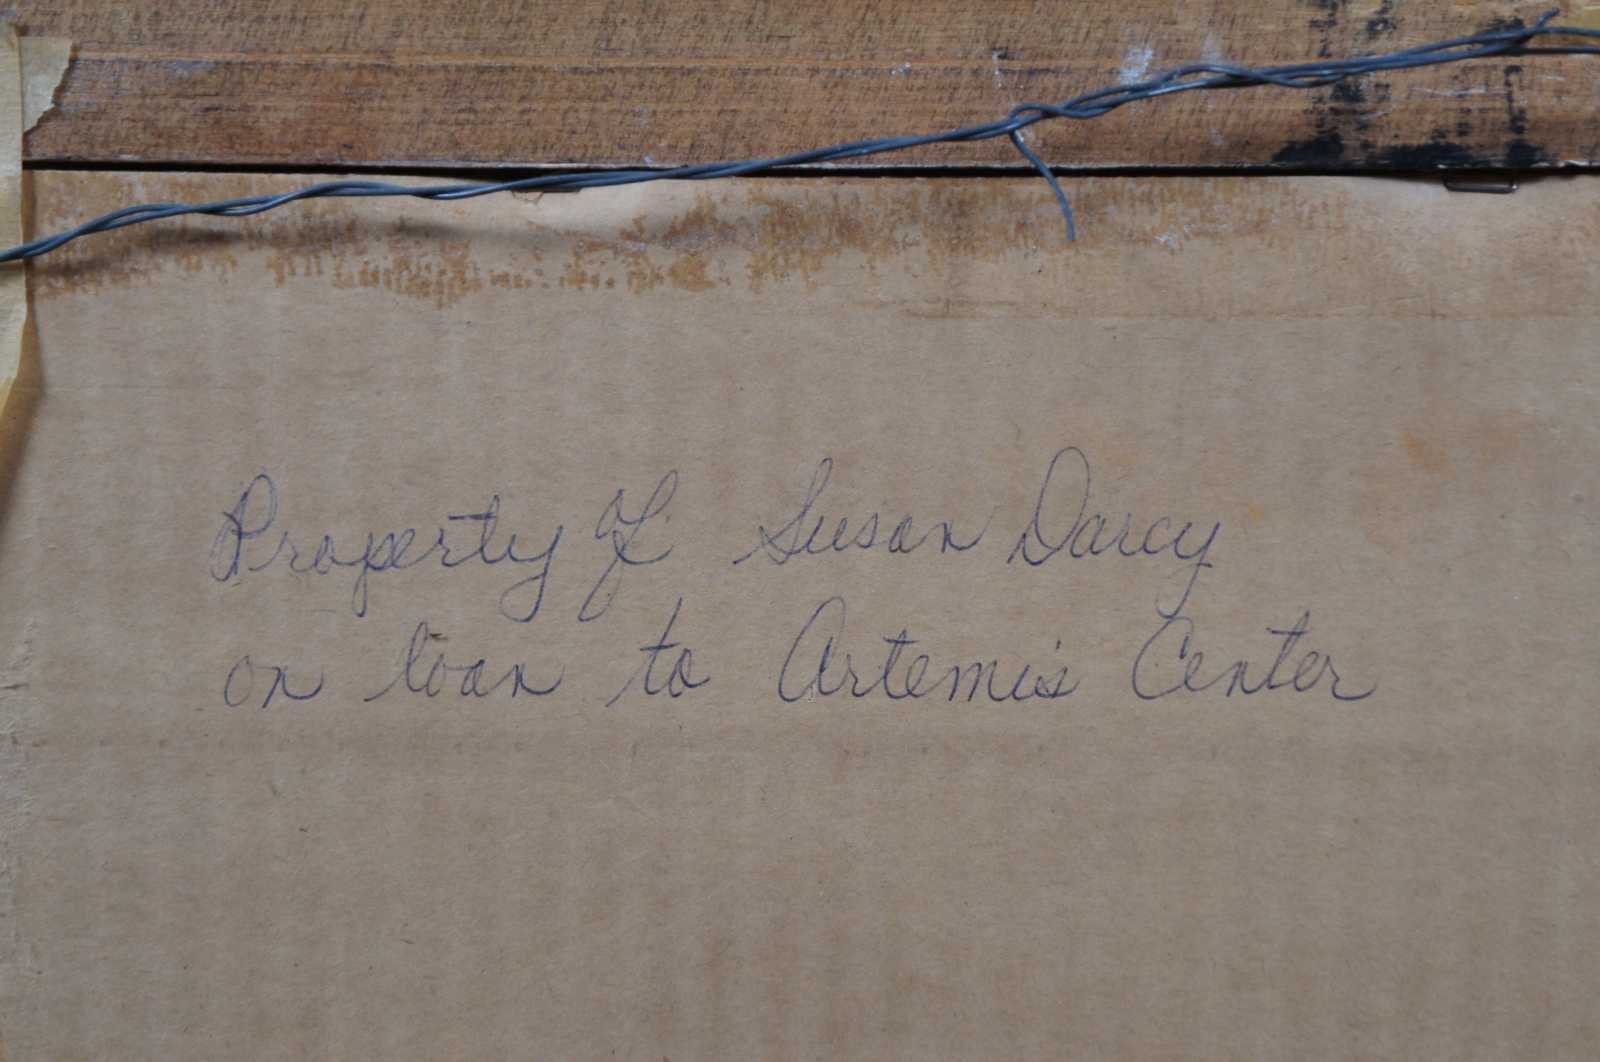 Property of Susan Darcy
on loan to Artemis Center